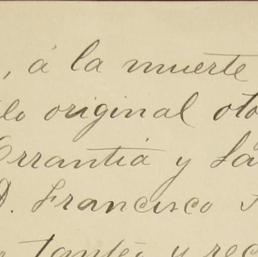 , á la muerte
lo original oto
Errantia y La
D. Francisco
tanteo y rec